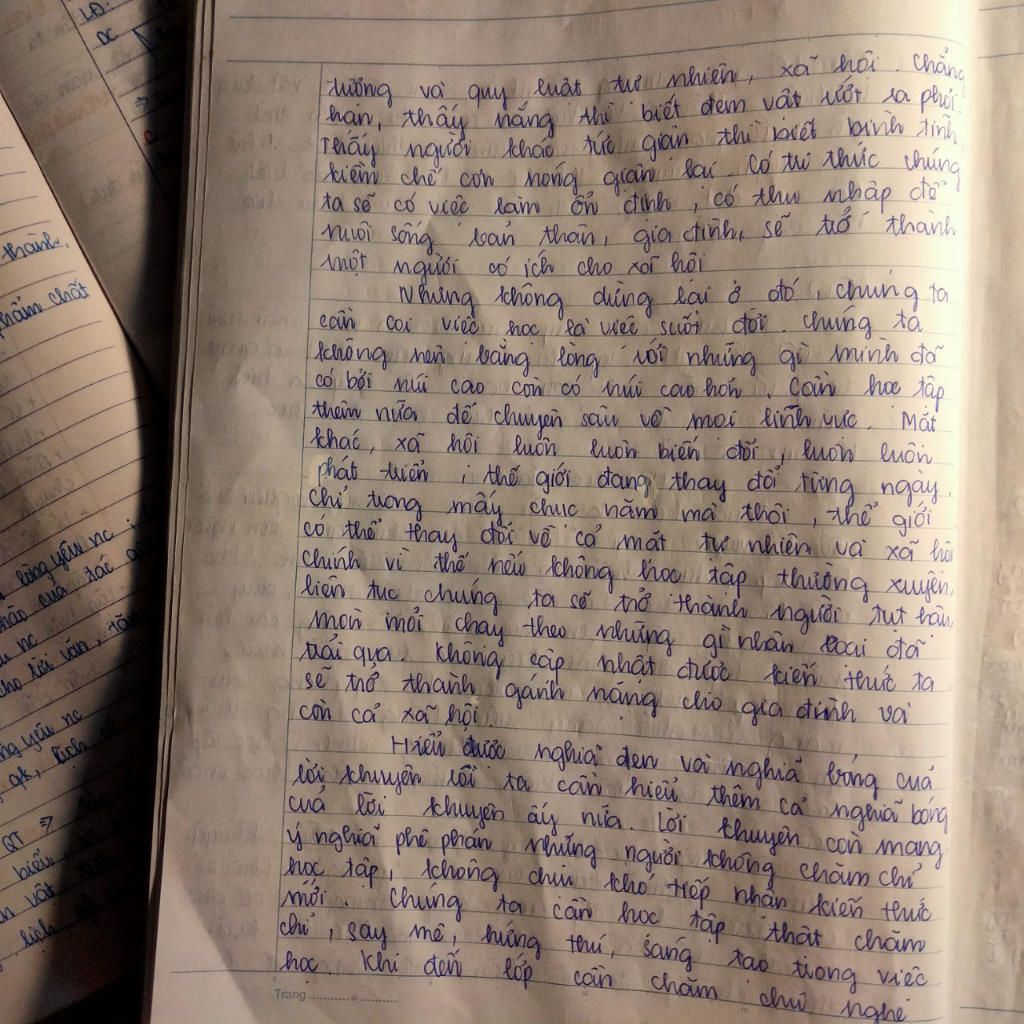 LĐ:
DC
thành,
phẩm chất
lòng yếu nc
QT => 
biểu
tưởng và quy luật tự nhiên, xã hội. Chẳng
hạn, thấy nắng thì biết đem vật ướt ra phơi.
Thấy người khác tức giận thì biết bình tĩnh,
kiềm chế cơn nóng giận lại. Có tri thức chúng
ta sẽ có việc làm ổn định, có thu nhập để
nuôi sống bản thân, gia đình, sẽ trở thành
một người có ích cho xã hội
Nhưng không dừng lại ở đó, chúng ta
cần coi việc học là việc suốt đời. Chúng ta
không nên bằng lòng với những gì mình đã
có bởi núi cao còn có núi cao hơn. Cần học tập
thêm nữa để chuyên sâu về mọi lĩnh vực. Mặt
khác, xã hội luôn luôn biến đổi, luôn luôn
phát triển, thế giới đang thay đổi từng ngày.
Chỉ trong mấy chục năm mà thôi, thế giới
có thể thay đổi về cả mặt tự nhiên và xã hội
chính vì thế nếu không học tập thường xuyên,
liên tục chúng ta sẽ trở thành người tụt hậu,
mòn mỏi chạy theo những gì nhân loại đã
trải qua. Không cập nhật được kiến thức ta
sẽ trở thành gánh nặng cho gia đình và
còn cả xã hội.
Hiểu được nghĩa đen và nghĩa bóng của
lời khuyên rồi ta cần hiểu thêm cả nghĩa bóng
của lời khuyên ấy nữa. Lời khuyên còn mang
ý nghĩa phê phán những người không chăm chỉ
học tập, không chịu khó tiếp nhận kiến thức
mới. Chúng ta cần học tập thật chăm
chỉ, say mê, hứng thú, sáng tạo trong việc
học. Khi đến lớp cần chăm chú nghe
Trang